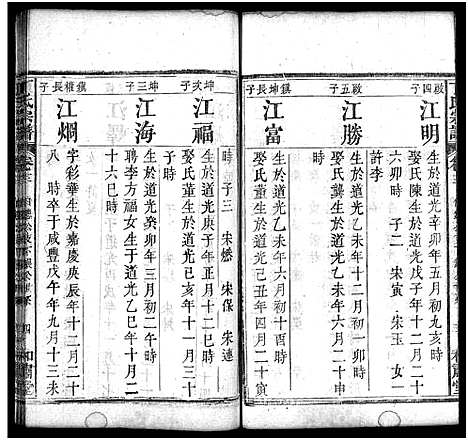 啟四子
江明
生於道光辛卯年五月初九亥時
娶氏陳生於道光乙未年十二月十
六卯時 子二 宋寅 宋玉 女一
許李
啟五子
江勝
生於道光 年 月初一卯時
娶氏龔生於道光乙巳年十二月申
時
鎮坤長子
江富
生於道光己亥年 月二十 時
娶氏董生於道光辛丑年四月二十寅
時 子三 宋懋 宋保 宋連
坤次子
江福
生於道光庚子年正月十二巳時
娶氏董生於道光己亥年十一月三十
子時
坤三子
江海
生於道光癸卯年三月初二戌時
聘李方福女生於道光乙巳年十月二
十六巳時
鎮權長子
江炯
字彩華生於嘉慶庚辰年十二月二十
八 時卒于咸豐戊午年九月十三未
氏宗譜
卷三
四
和肅堂